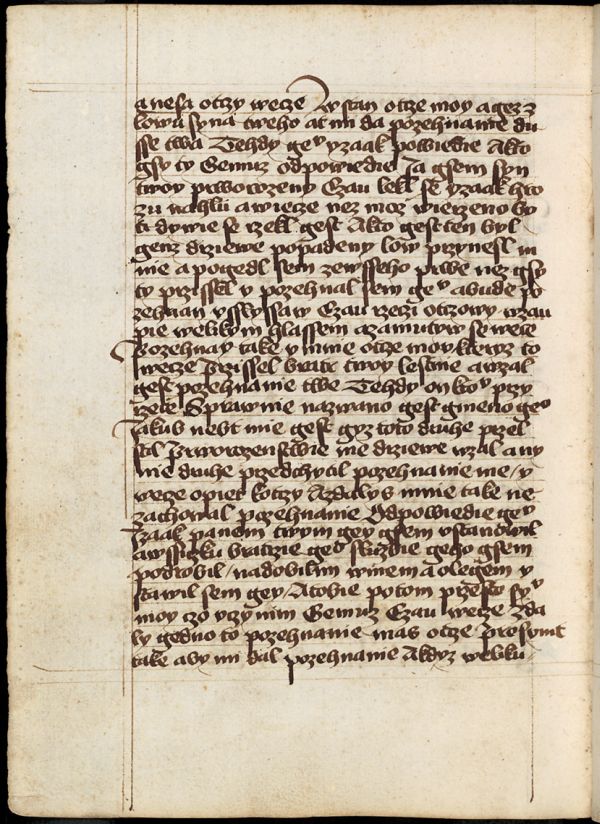 a nesa otczy wecze Wstan otcze moy a gez z
lowu syna tweho at mi da pozehnanie du
sse twa Tehdy geͮ yzaak powiedie Akto
gsy ty Gemuz odpowiedie Ja gsem syn
twoy prworozeny Ezau lekl se yzaak hro
zu nahlu a wiecze nez moz wierzeno by
ti dywie se rzekl gest Akto gest ten byl
genz drziewe popadeny low przynesl m
nie a pogedl sem zewsseho prwe nez gsy
ty przissel y pozehnal sem geͮ a bude po
zehnan Vslyssaw Ezau rzeczi otczowy wzau
pie welikym hlassem a zamutyw se wece
Pozehnay take y mnie otce moy kteryz to
wecze Przissel bratr twoy lestnie a wzal
gest pozehnanie twe Tehdy on koͮ przy
rzece Sprawnie nazwano gest gmeno geͮ
Jakub nebt mie gest gyz toto druhe przel
stil Prworozenstwie me drziewe wzal a ny
nie druhe przedchytil pozehnanie me / y
wecze opiet k otczy Azdalys mnie take ne
zachowal pozehnanie Odpowiedie geͮ
Izaak panem twym gey gsem vstanowil
a wssiczku bratrzie geͦ sluzbie gehͦ gsem
podrobil / nadobilim winem a olegem v
stawil sem gey / A tobie potom przesto syͮ
moy czo vczynim Gemuz Ezau wecze Zda
ly gedno to pozehnanie mas otcze Prosymt
take aby mi dal pozehnanie Akdyz weliku